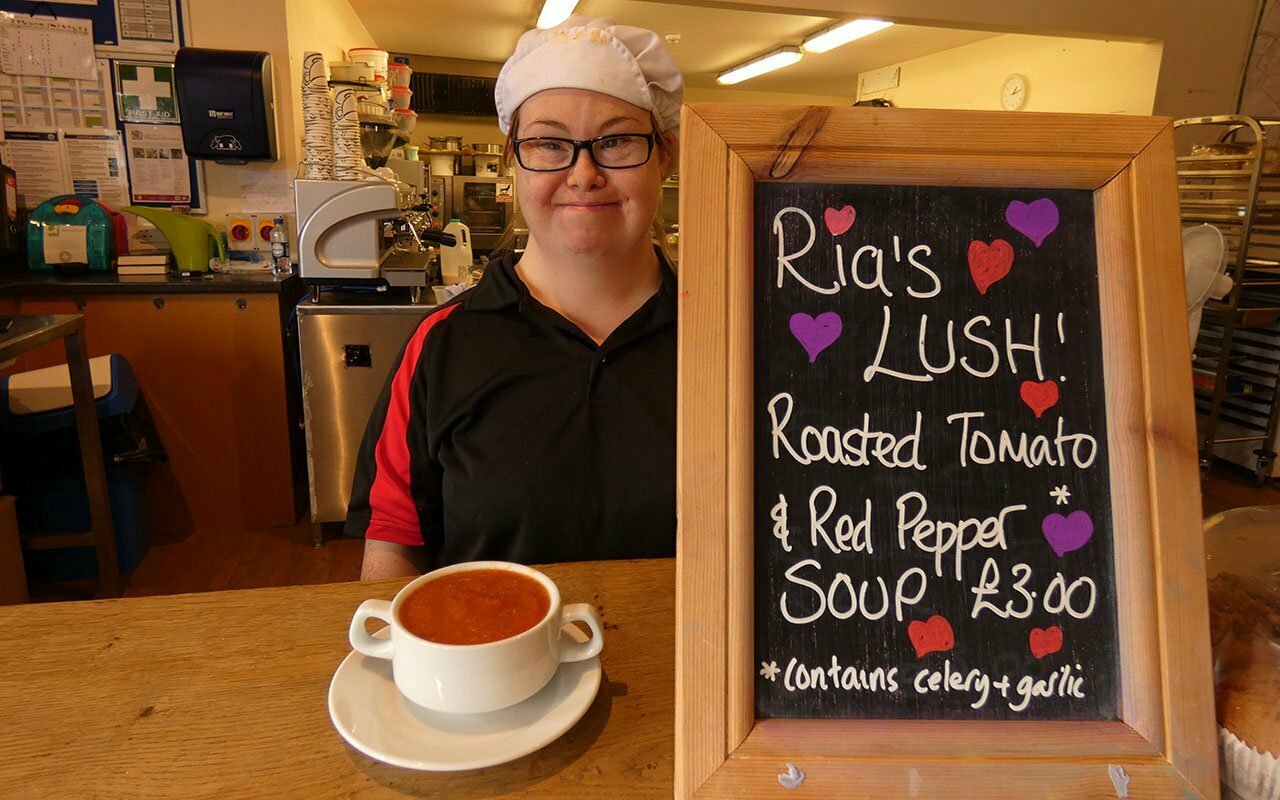 FIRST AID
Ria's
LUSH!
Roasted Tomato
& Red Pepper*
SOUP £3.00
*contains celery + garlic